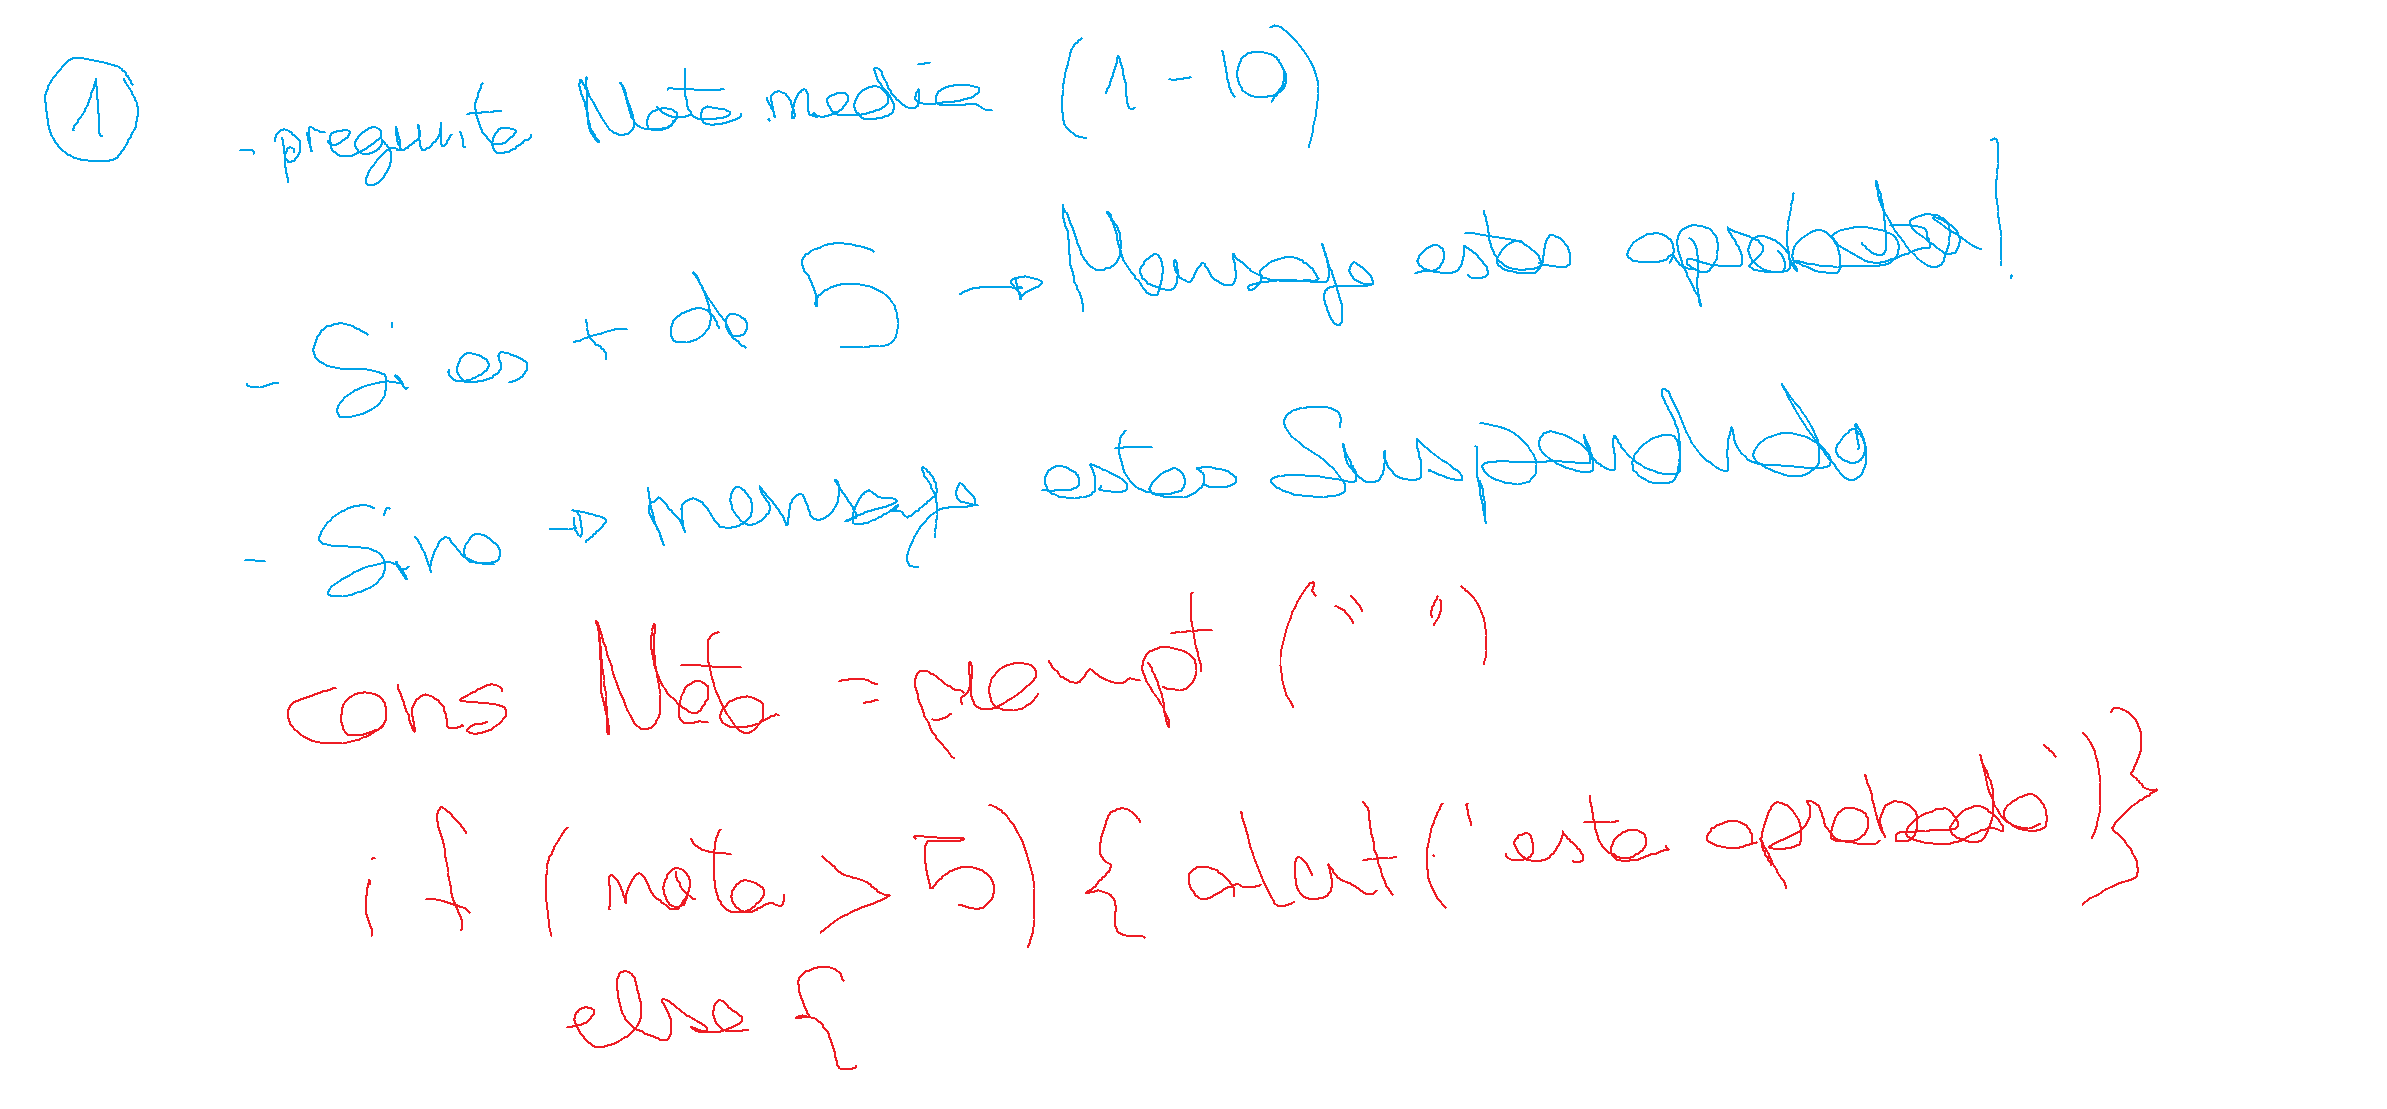 1
- pregunta Nota media (1 - 10)
- Si es + de 5 → Mensaje estas aprobado!
- Si no → mensaje estas Suspendido
cons Nota = prompt (" ")
if (nota > 5) { alert ('esta aprobado') }
else {